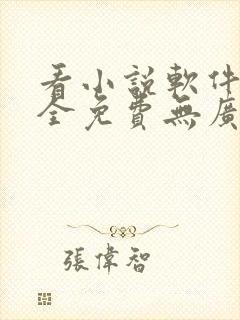 看小説軟件
全免費無廣
張偉智